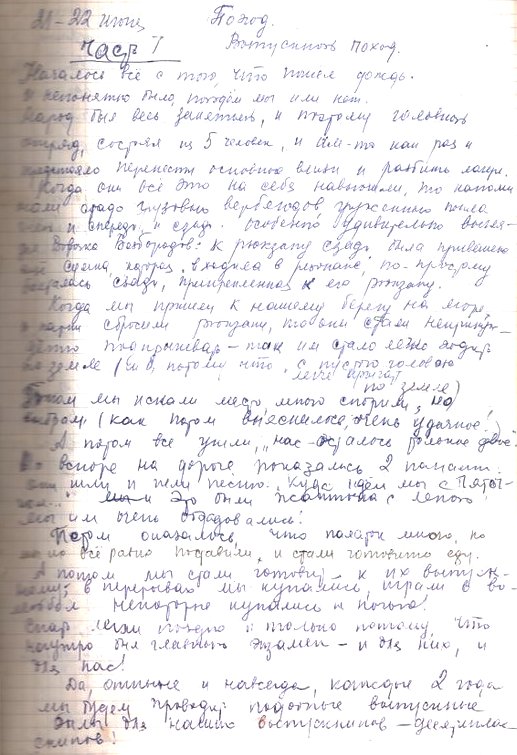 21-22 июня Поход.
Часть I Выпускной поход.
Началось всё с того, что пошёл дождь.
И непонятно было, пойдём мы или нет.
Народ был весь занятый, и поэтому головной
отряд, состоял из 5 человек, и им-то как раз и
предстояло перенести основные вещи и разбить лагерь.
Когда они всё это на себя навьючили, то напоми
нали стадо грузовых верблюдов, груженных
и спереди, и сзади. Особенно удивительно выгля-
дел Вовочка: к рюкзаку сзади была привешена
сумка, которая, входила в резонанс, по-просту
сзади, прикрепленная к его рюкзаку.
Когда мы пришли к нашему берегу на море,
и парни сбросили рюкзаки, то они стали непроизво-
подпрыгивать - так им стало легко ходить
по земле (и потому что, с пустой головою
легче прыгать
по земле)
Потом мы искали место, много спорили, но
выбрали (как потом выяснилось, очень удачное!)
А потом все ушли, нас осталось только двое.
Но вскоре на дороге показались 2
они шли и пели песню: "Куда идём мы с Пятач-
ком.." Это были
мы им очень обрадовались!
Потом оказалось, что палаток много, но
мы их всё равно поставили, и стали готовить еду.
А потом мы стали готовить к их выпуск-
ному, в перерывах мы купались, играли в во-
лейбол некоторые купались и ночью!
Спать легли поздно и только потому, что
наутро был главный экзамен - и для них, и
для нас!
Да, отныне и навсегда, каждые 2 года
мы будем проводить подобные выпускные
балы для наших выпускников - десятиклас-
сников!